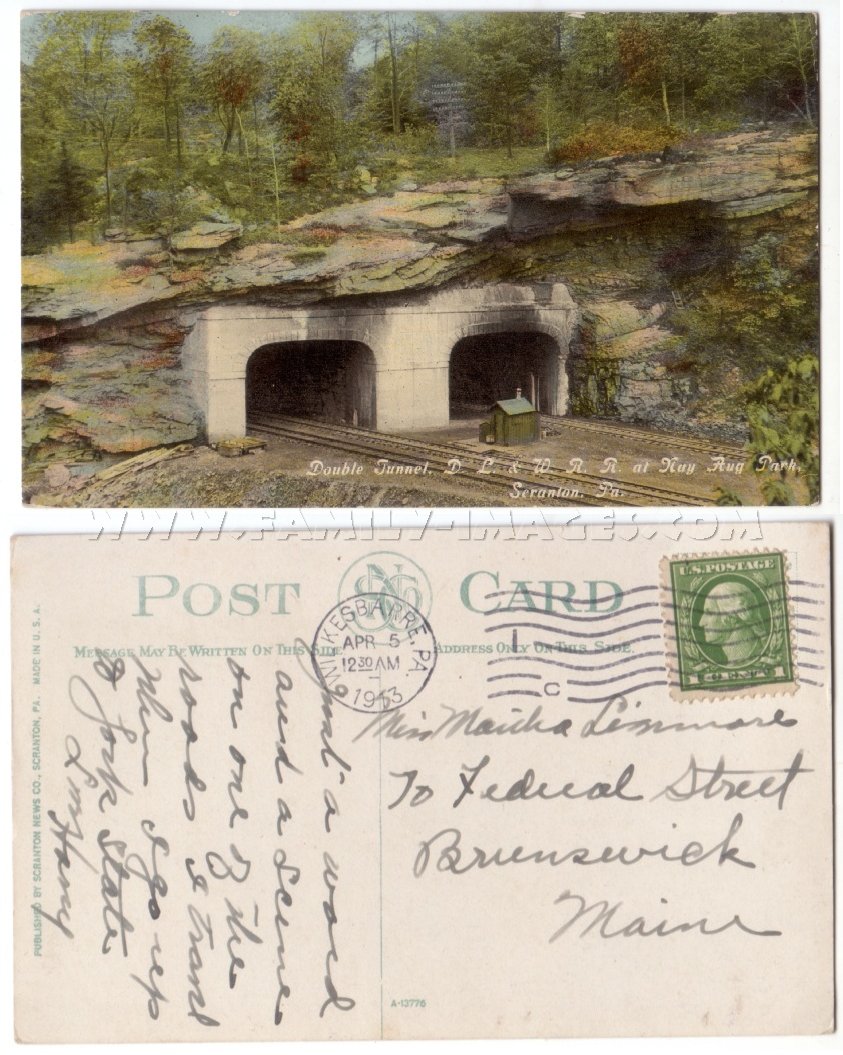 Double Tunnel, D. L. & W. R. R. at Nay Aug Park,
Scranton, Pa.
WWW.FAMILY-IMAGES.COM
POST CARD
MESSAGE MAY BE WRITTEN ON THIS SIDE
ADDRESS ONLY ON THIS SIDE.
WILKESBARRE, PA.
APR 5
12 30 AM
1913
1
C
U.S. POSTAGE
PUBLISHED BY SCRANTON NEWS CO., SCRANTON, PA. MADE IN U. S. A.
Just a word
and a Scene
on one of the
roads I travl
when I go up
to York State
Harry
Miss Martha
70 Federal Street
Brunswick
Maine
A-13776